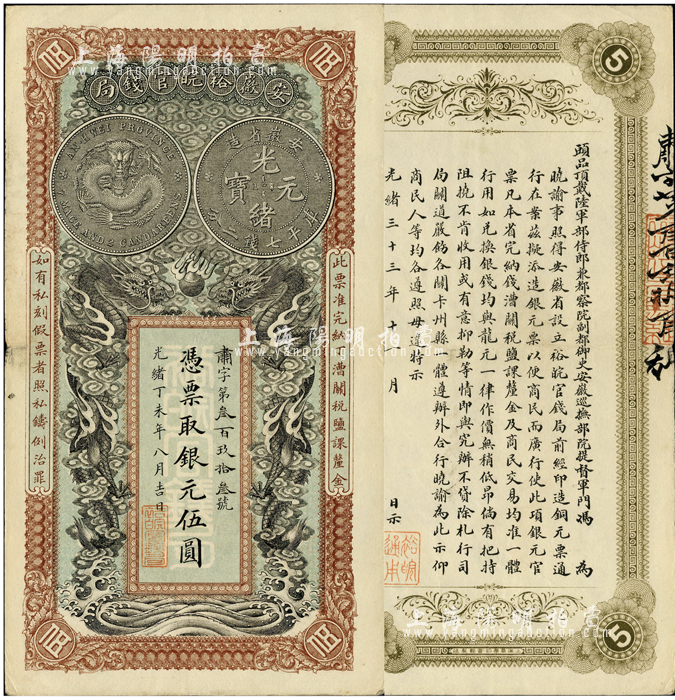 上海陽明拍賣
www.yangmingauction.com
安徽裕皖官錢局
伍
伍
AN-HWEI PROVINCE
7 MACE AND 2 CANDAREENS
安徽省造
光緒元寶
庫平七錢二分
此票准完納錢漕關稅鹽課釐金
如有私刻假票者照私鑄例治罪
肅字第叁百玖拾叁號
憑票取銀元伍圓
光緒丁未年八月吉日
上海陽明拍賣
www.yangmingauction.com
伍
伍
5
頭品頂戴陸軍部侍郎兼都察院副都御史安徽巡撫部院提督軍門馮 為
曉諭事照得安徽省設立裕皖官錢局前經印造銅元票通
行在案茲擬添造銀元票以便商民而廣行使此項銀元官
票凡本省完納錢漕關稅鹽課釐金及商民交易均准一體
行用如兌換銀錢均與龍元一律作價無稍低昂倘有把持
阻撓不肯收用或有意抑勒等情即與究辦不貸除札行司
局關道嚴飭各關卡州縣一體遵辦外合行曉諭為此示仰
商民人等均各遵照毋違特示
光緒三十三年十 月 日示
裕皖通本
上海陽明拍賣
www.yangmingauction.com
5